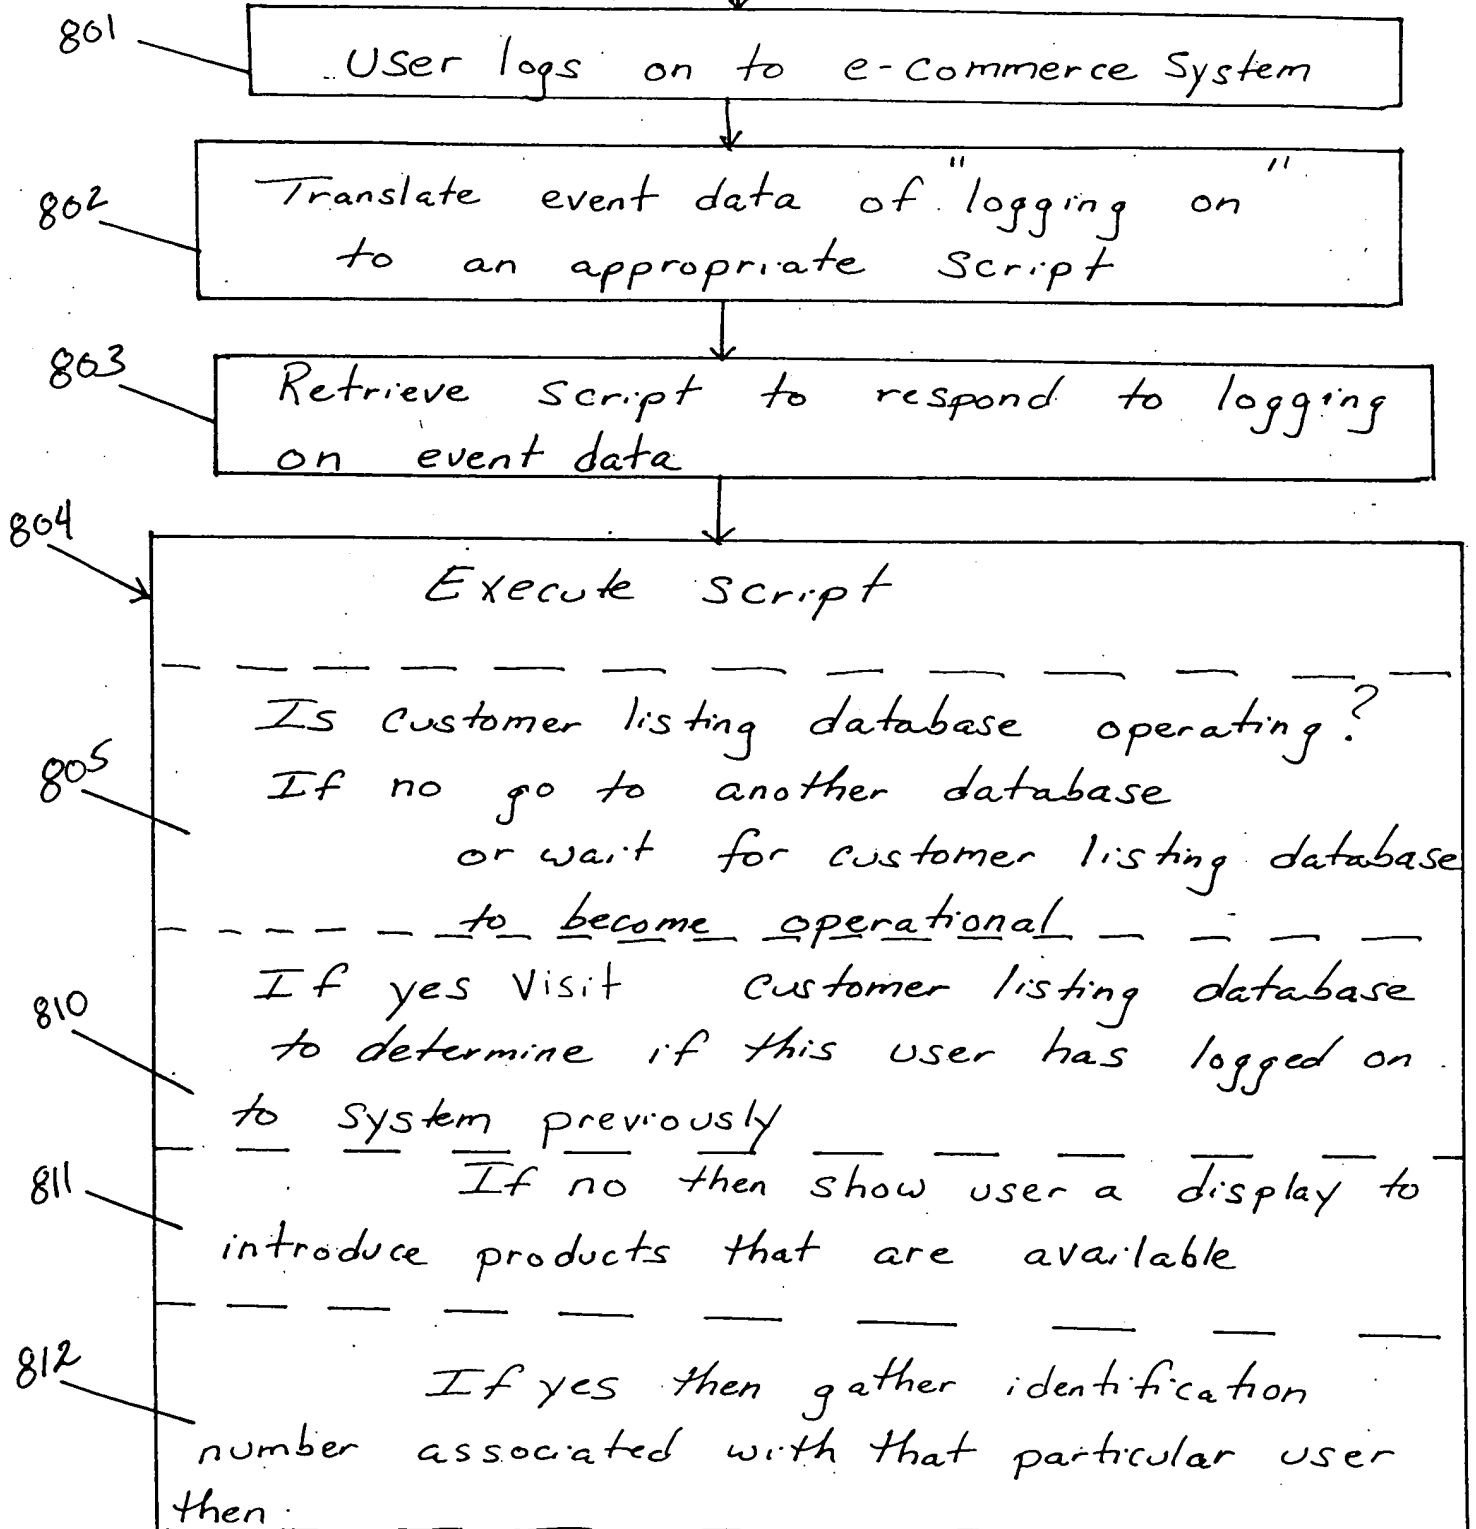 801
User logs on to e-commerce System
802
Translate event data of "logging on"
to an appropriate script
803
Retrieve script to respond to logging
on event data
804
Execute script
Is customer listing database operating?
805
If no go to another database
or wait for customer listing database
to become operational
If yes Visit customer listing database
810
to determine if this user has logged on
to system previously
811
If no then show user a display to
introduce products that are available
812
If yes then gather identification
number associated with that particular user
then